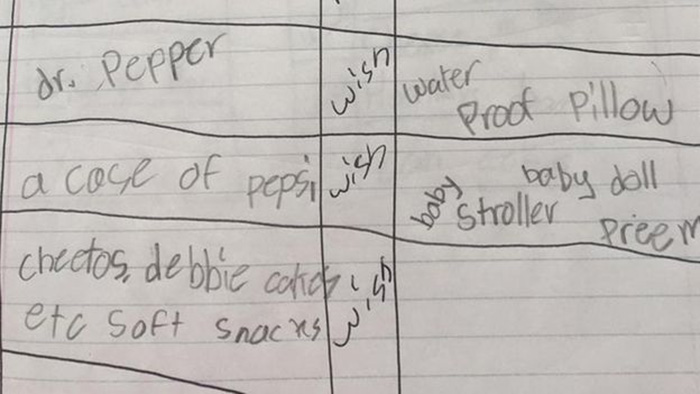 dr. Pepper wish water
Proof Pillow
a case of pepsi wish baby baby doll
Stroller Preem
cheetos, debbie wish
etc soft snacks